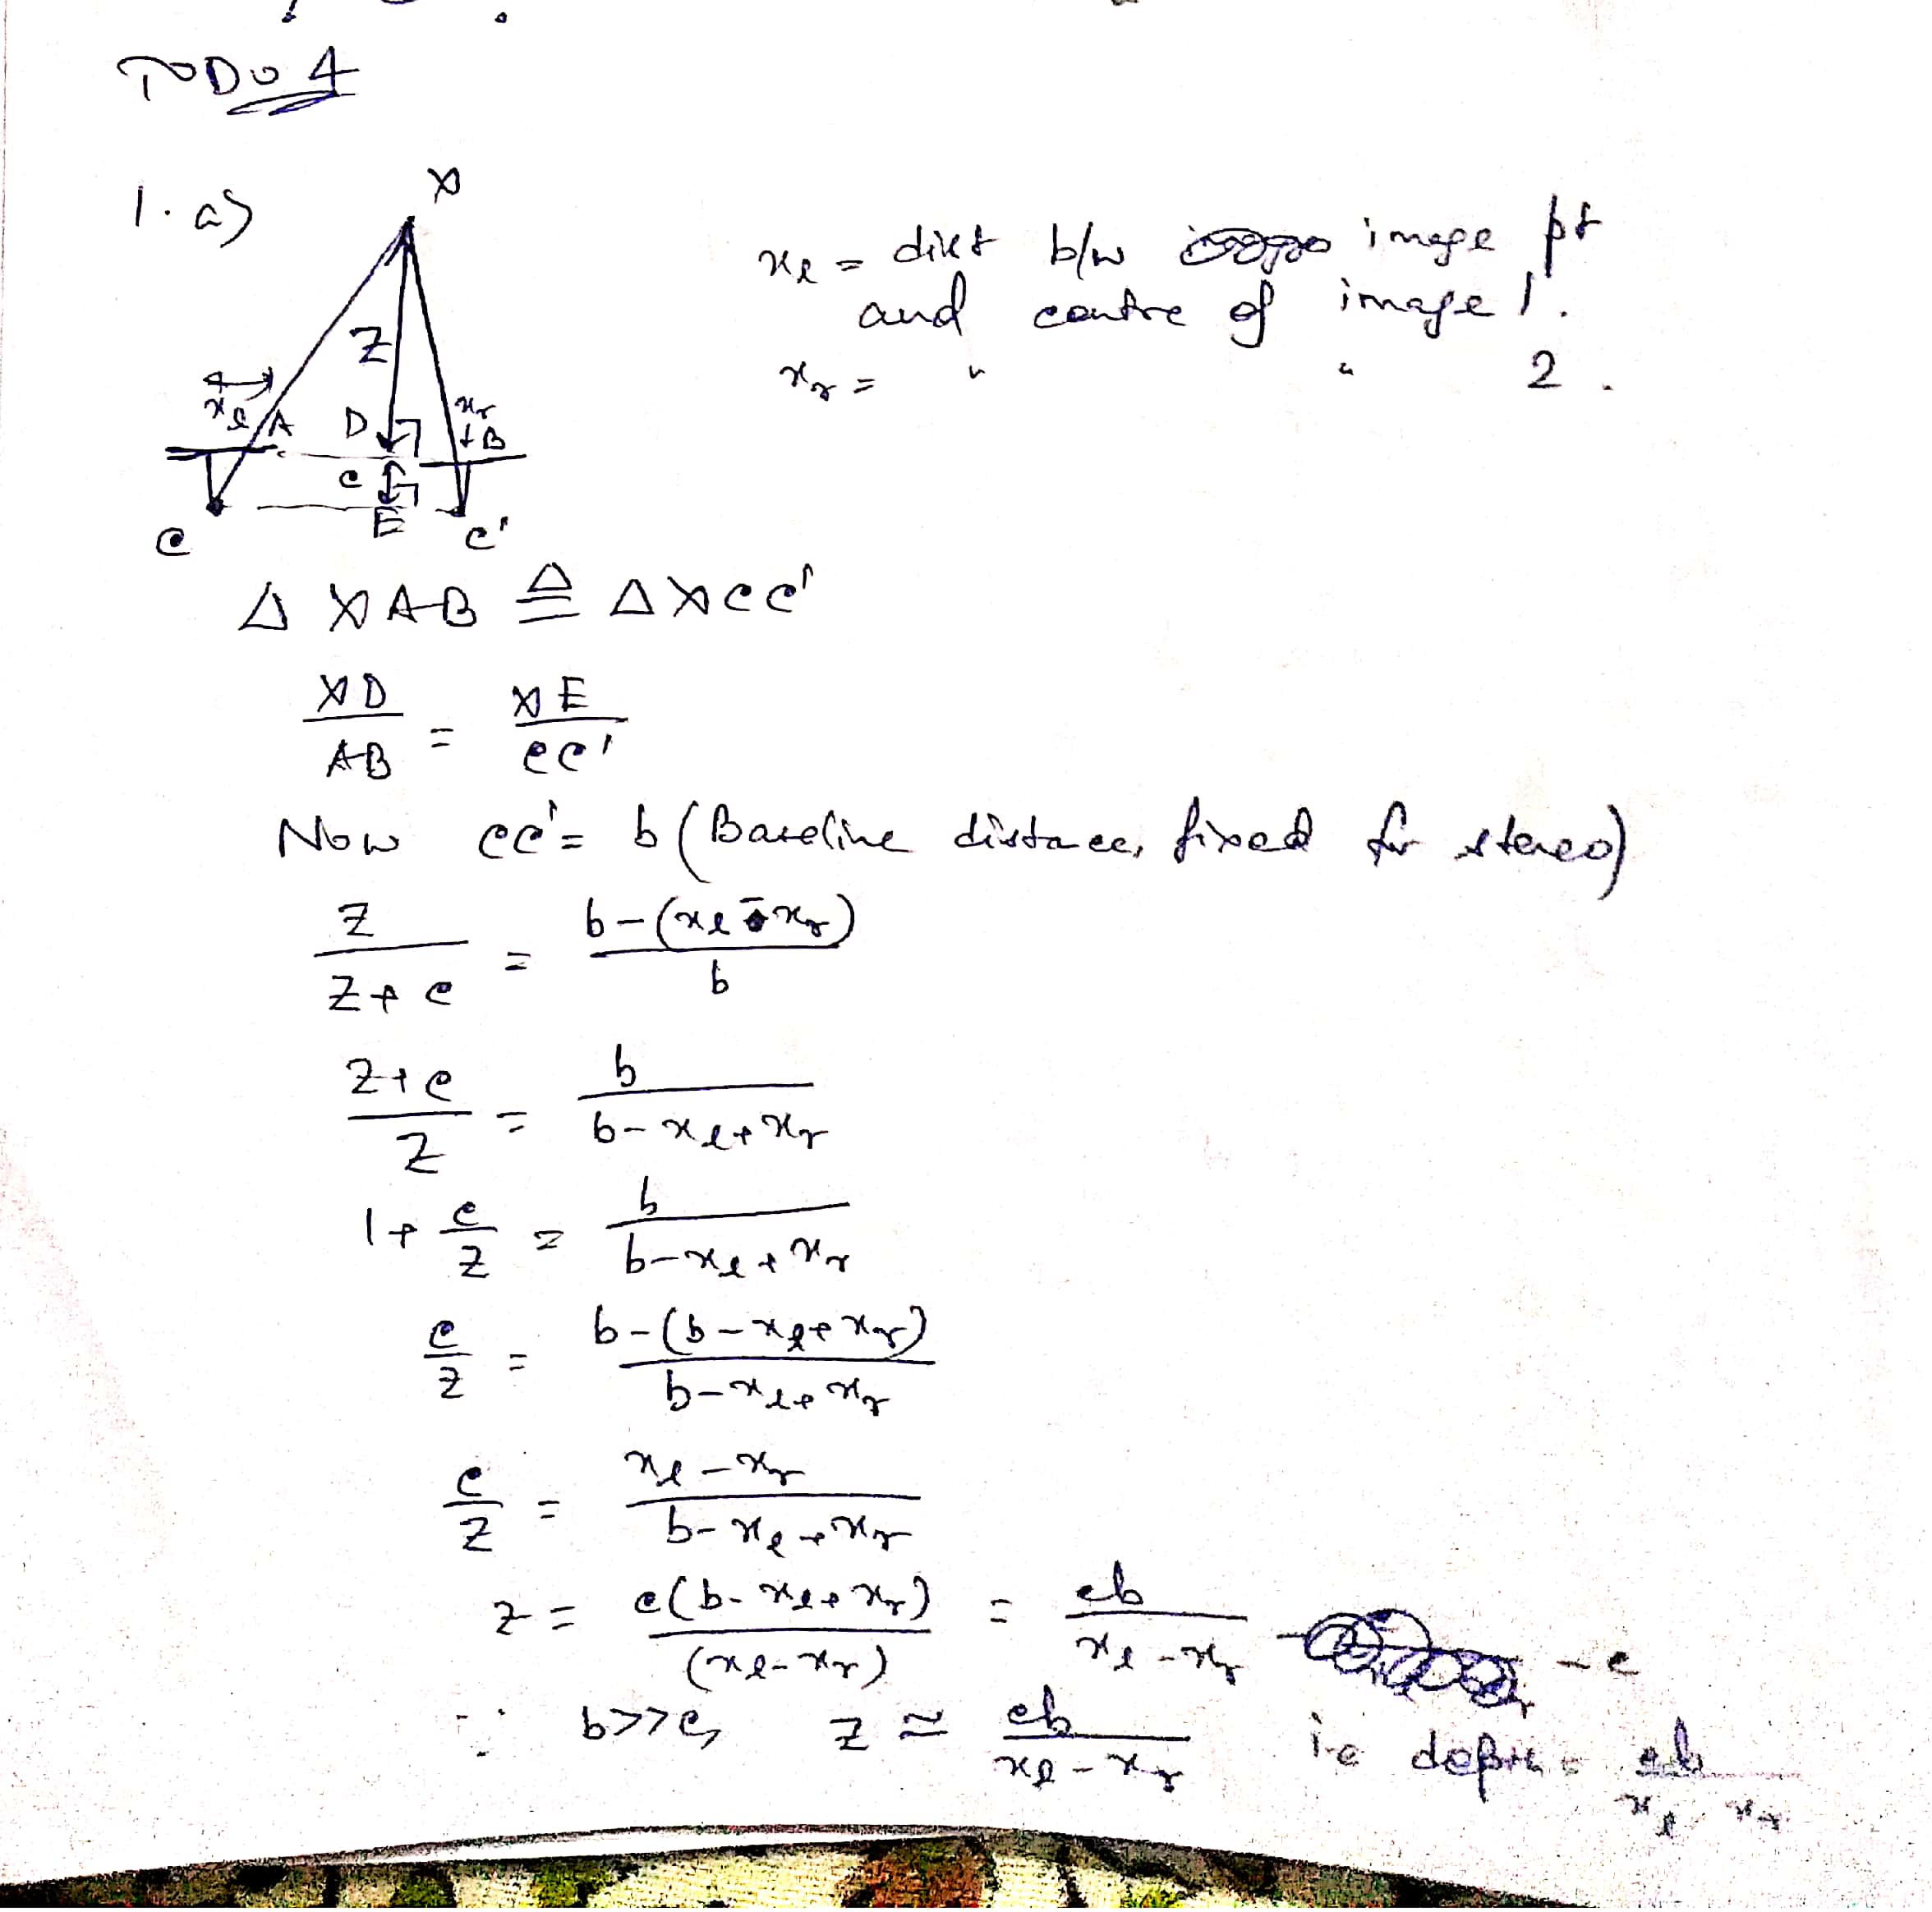 TODO 4
1. a)
X
x_l = dist b/w image pt
and centre of image 1.
x_r = " " 2.
Z
x_l A D x_r B
c
E
C C'
Δ XAB ≙ Δ XCC'
XD/AB = XE/CC'
Now CC' = b (Baseline distance, fixed for stereo)
Z/(Z+c) = (b-(x_l - x_r))/b
(Z+c)/Z = b/(b-x_l+x_r)
1+ c/Z = b/(b-x_l+x_r)
c/Z = (b-(b-x_l+x_r))/(b-x_l+x_r)
c/Z = (x_l-x_r)/(b-x_l+x_r)
Z = c(b-x_l+x_r)/(x_l-x_r) = cb/(x_l-x_r) - c
∵ b>>c, Z ≈ cb/(x_l-x_r) i.e depth = cb/(x_l-x_r)